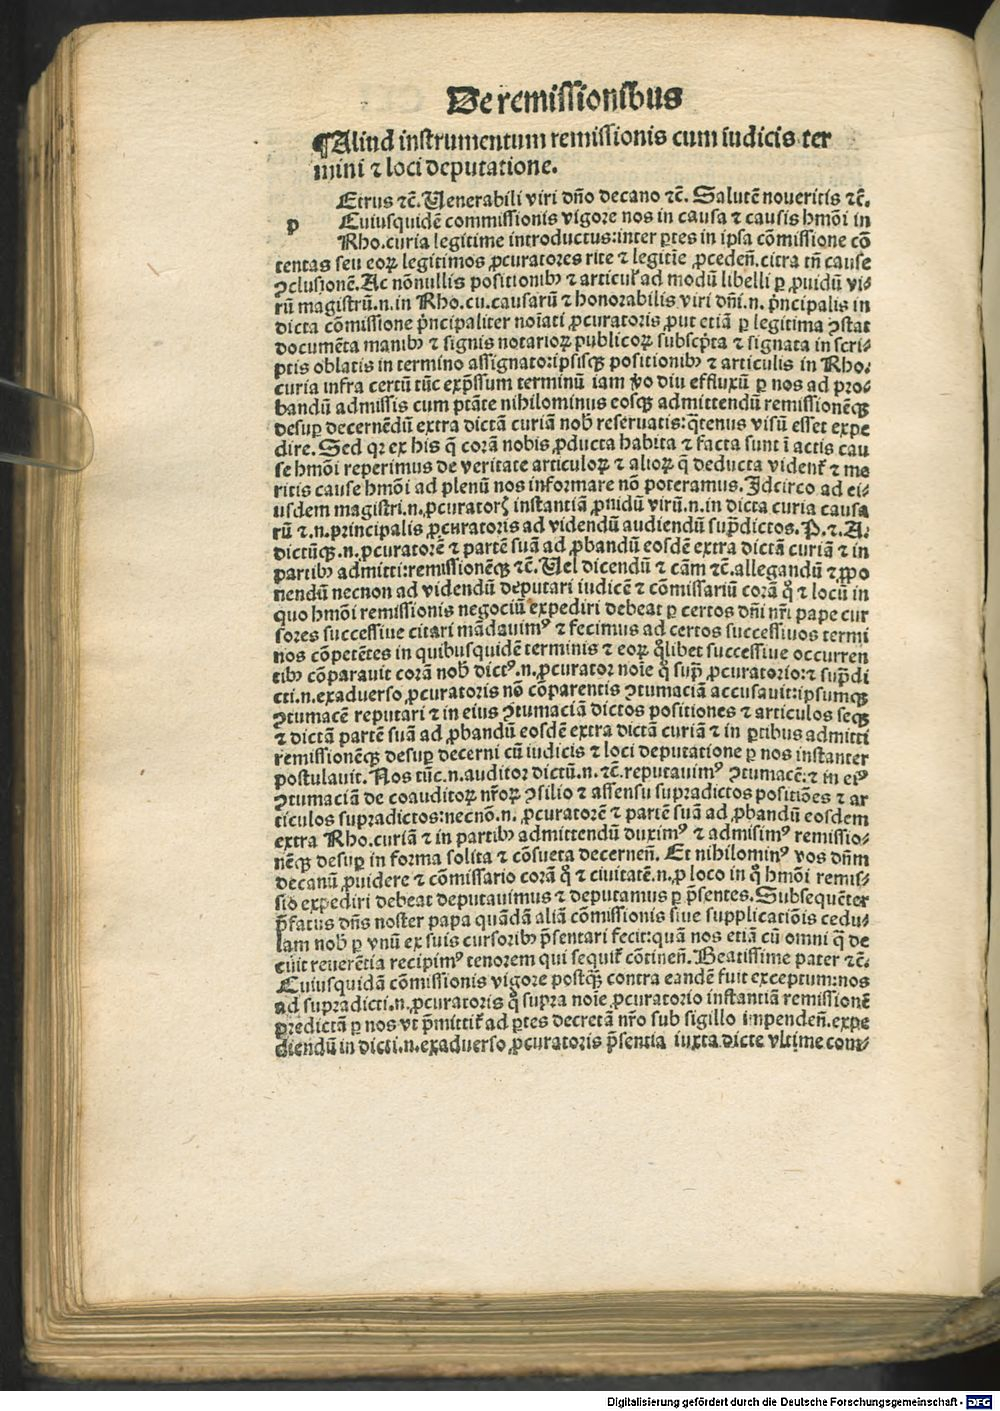 De remissionibus
¶Aliud instrumentum remissionis cum iudicis ter
mini ⁊ loci deputatione.
Etrus ⁊c̃. Venerabili viri dño decano ⁊c̃. Salutẽ noveritis ⁊c̃.
p Cuiusquidẽ commissionis vigore nos in causa ⁊ causis hmõi in
Rho.curia legitime introductus:inter ꝑtes in ipsa cõmissione cõ
tentas seu eoꝝ legitimos ꝓcuratores rite ⁊ legitĩe ꝓcedeñ.citra tñ cause
ꝯclusionẽ. Ac nõnullis positionibꝰ ⁊ articuł ad modũ libelli ꝑ ꝓuidũ vi⸗
rũ magistrũ.n.in Rho.cu.causarũ ⁊ honorabilis viri dñi.n. pͥncipalis in
dicta cõmissione pͥncipaliter noĩati ꝓcuratoris ꝓut etiã ꝑ legitima ꝯstat
documẽta manibꝰ ⁊ signis notarioꝝ publicoꝝ subscp̃ta ⁊ signata in scri⸗
ptis oblatis in termino assignato:ipsisqꝫ positionibꝰ ⁊ articulis in Rho.
curia infra certũ tũc exp̃ssum terminũ iam ṽo diu effluxũ ꝑ nos ad pro⸗
bandũ admissis cum ptãte nihilominus eosqꝫ admittendũ remissionẽqꝫ
desuꝑ decernẽdũ extra dictã curiã nob̃ reseruatis:q̃tenus visũ esset expe
dire. Sed qꝛ ex his q̃ corã nobis ꝓducta habita ⁊ facta sunt ĩ actis cau
se hmõi reperimus de veritate articuloꝝ ⁊ alioꝝ q̃ deducta videnť ⁊ me
ritis cause hmõi ad plenũ nos informare nõ poteramus. Idcirco ad ei⸗
usdem magistri.n.ꝓcuratorꝭ instantiã ꝓuidũ virũ.n.in dicta curia causa
rũ ⁊.n.principalis ꝓcuratoris ad videndũ audiendũ sup̃dictos. P.⁊.A.
dictũqꝫ.n.ꝓcuratorẽ ⁊ partẽ suã ad ꝓbandũ eosdẽ extra dictã curiã ⁊ in
partibꝰ admitti:remissionẽqꝫ ⁊c̃. Vel dicendũ ⁊ cãm ⁊c̃.allegandũ ⁊ ꝓpo
nendũ necnon ad videndũ deputari iudicẽ ⁊ cõmissariũ corã qͦ ⁊ locũ in
quo hmõi remissionis negociũ expediri debeat ꝑ certos dñi nr̃i pape cur
sores successiue citari mãdauimꝰ ⁊ fecimus ad certos successiuos termi
nos cõpetẽtes in quibusquidẽ terminis ⁊ eoꝝ qͦlibet successiue occurren
tibꝰ cõparauit corã nob̃ dictꝰ.n.ꝓcurator noĩe qͦ sup̃ ꝓcuratorio:⁊ sup̃di
cti.n.exaduerso ꝓcuratoris nõ cõparentis ꝯtumaciã accusauit:ipsumqꝫ
ꝯtumacẽ reputari ⁊ in eius ꝯtumaciã dictos positiones ⁊ articulos seqꝫ
⁊ dictã partẽ suã ad ꝓbandũ eosdẽ extra dictã curiã ⁊ in ꝑtibus admitti
remissionẽqꝫ desuꝑ decerni cũ iudicis ⁊ loci deputatione ꝑ nos instanter
postulauit. Nos tũc.n.auditor dictũ.n.⁊c̃.reputauimꝰ ꝯtumacẽ:⁊ in eiꝰ
ꝯtumaciã de coauditoꝝ nr̃oꝝ ꝯsilio ⁊ assensu supradictos positiões ⁊ ar
ticulos supradictos:necnõ.n. ꝓcuratorẽ ⁊ partẽ suã ad ꝓbandũ eosdem
extra Rho.curiã ⁊ in partibꝰ admittendũ duximꝰ ⁊ admisimꝰ remissio⸗
nẽqꝫ desuꝑ in forma solita ⁊ cõsueta decerneñ. Et nihilominꝰ vos dñm
decanũ ꝓuidere ⁊ cõmissario corã qͦ ⁊ ciuitatẽ.n.ꝓ loco in qͦ hmõi remis⸗
sio expediri debeat deputauimus ⁊ deputamus ꝑ p̃sentes. Subsequẽter
p̃fatus dñs noster papa quãdã aliã cõmissionis siue supplicatiõis cedu⸗
lam nob̃ ꝑ vnũ ex suis cursoribꝰ p̃sentari fecit:quã nos etiã cũ omni q̃ de
cuit reuerẽtia recipimꝰ tenorem qui sequiť cõtineñ. Beatissime pater ⁊c̃.
Cuiusquidã cõmissionis vigore postqꝫ contra eandẽ fuit exceptum:nos
ad supradicti.n.ꝓcuratoris qͦ supra noĩe ꝓcuratorio instantiã remissionẽ
predictã ꝑ nos vt p̃mittiť ad ꝑtes decretã nr̃o sub sigillo impendeñ.expe
diendũ in dicti.n.exaduerso ꝓcuratoris p̃sentia iuxta dicte vltime com⸗
Digitalisierung gefördert durch die Deutsche Forschungsgemeinschaft - DFG